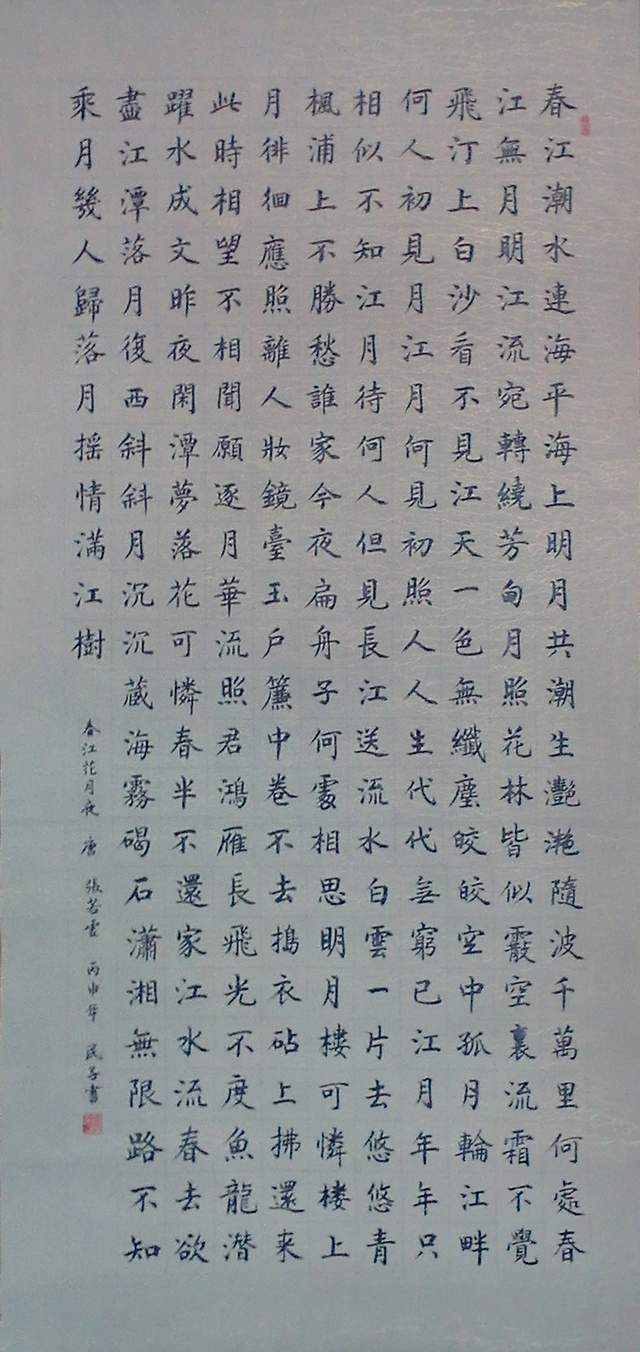 春江潮水連海平海上明月共潮生灩滟隨波千萬里何處春
江無月明江流宛轉繞芳甸月照花林皆似霰空裏流霜不覺
飛汀上白沙看不見江天一色無纖塵皎皎空中孤月輪江畔
何人初見月江月何見初照人人生代代無窮已江月年年只
相似不知江月待何人但見長江送流水白雲一片去悠悠青
楓浦上不勝愁誰家今夜扁舟子何處相思明月樓可憐樓上
月徘徊應照離人妝鏡臺玉戶簾中卷不去搗衣砧上拂還来
此時相望不相聞願逐月華流照君鴻雁長飛光不度魚龍潛
躍水成文昨夜閑潭夢落花可憐春半不還家江水流春去欲
盡江潭落月復西斜斜月沉沉藏海霧碣石瀟湘無限路不知
乘月幾人歸落月搖情滿江樹
春江花月夜 唐 張若虛 丙申年 書